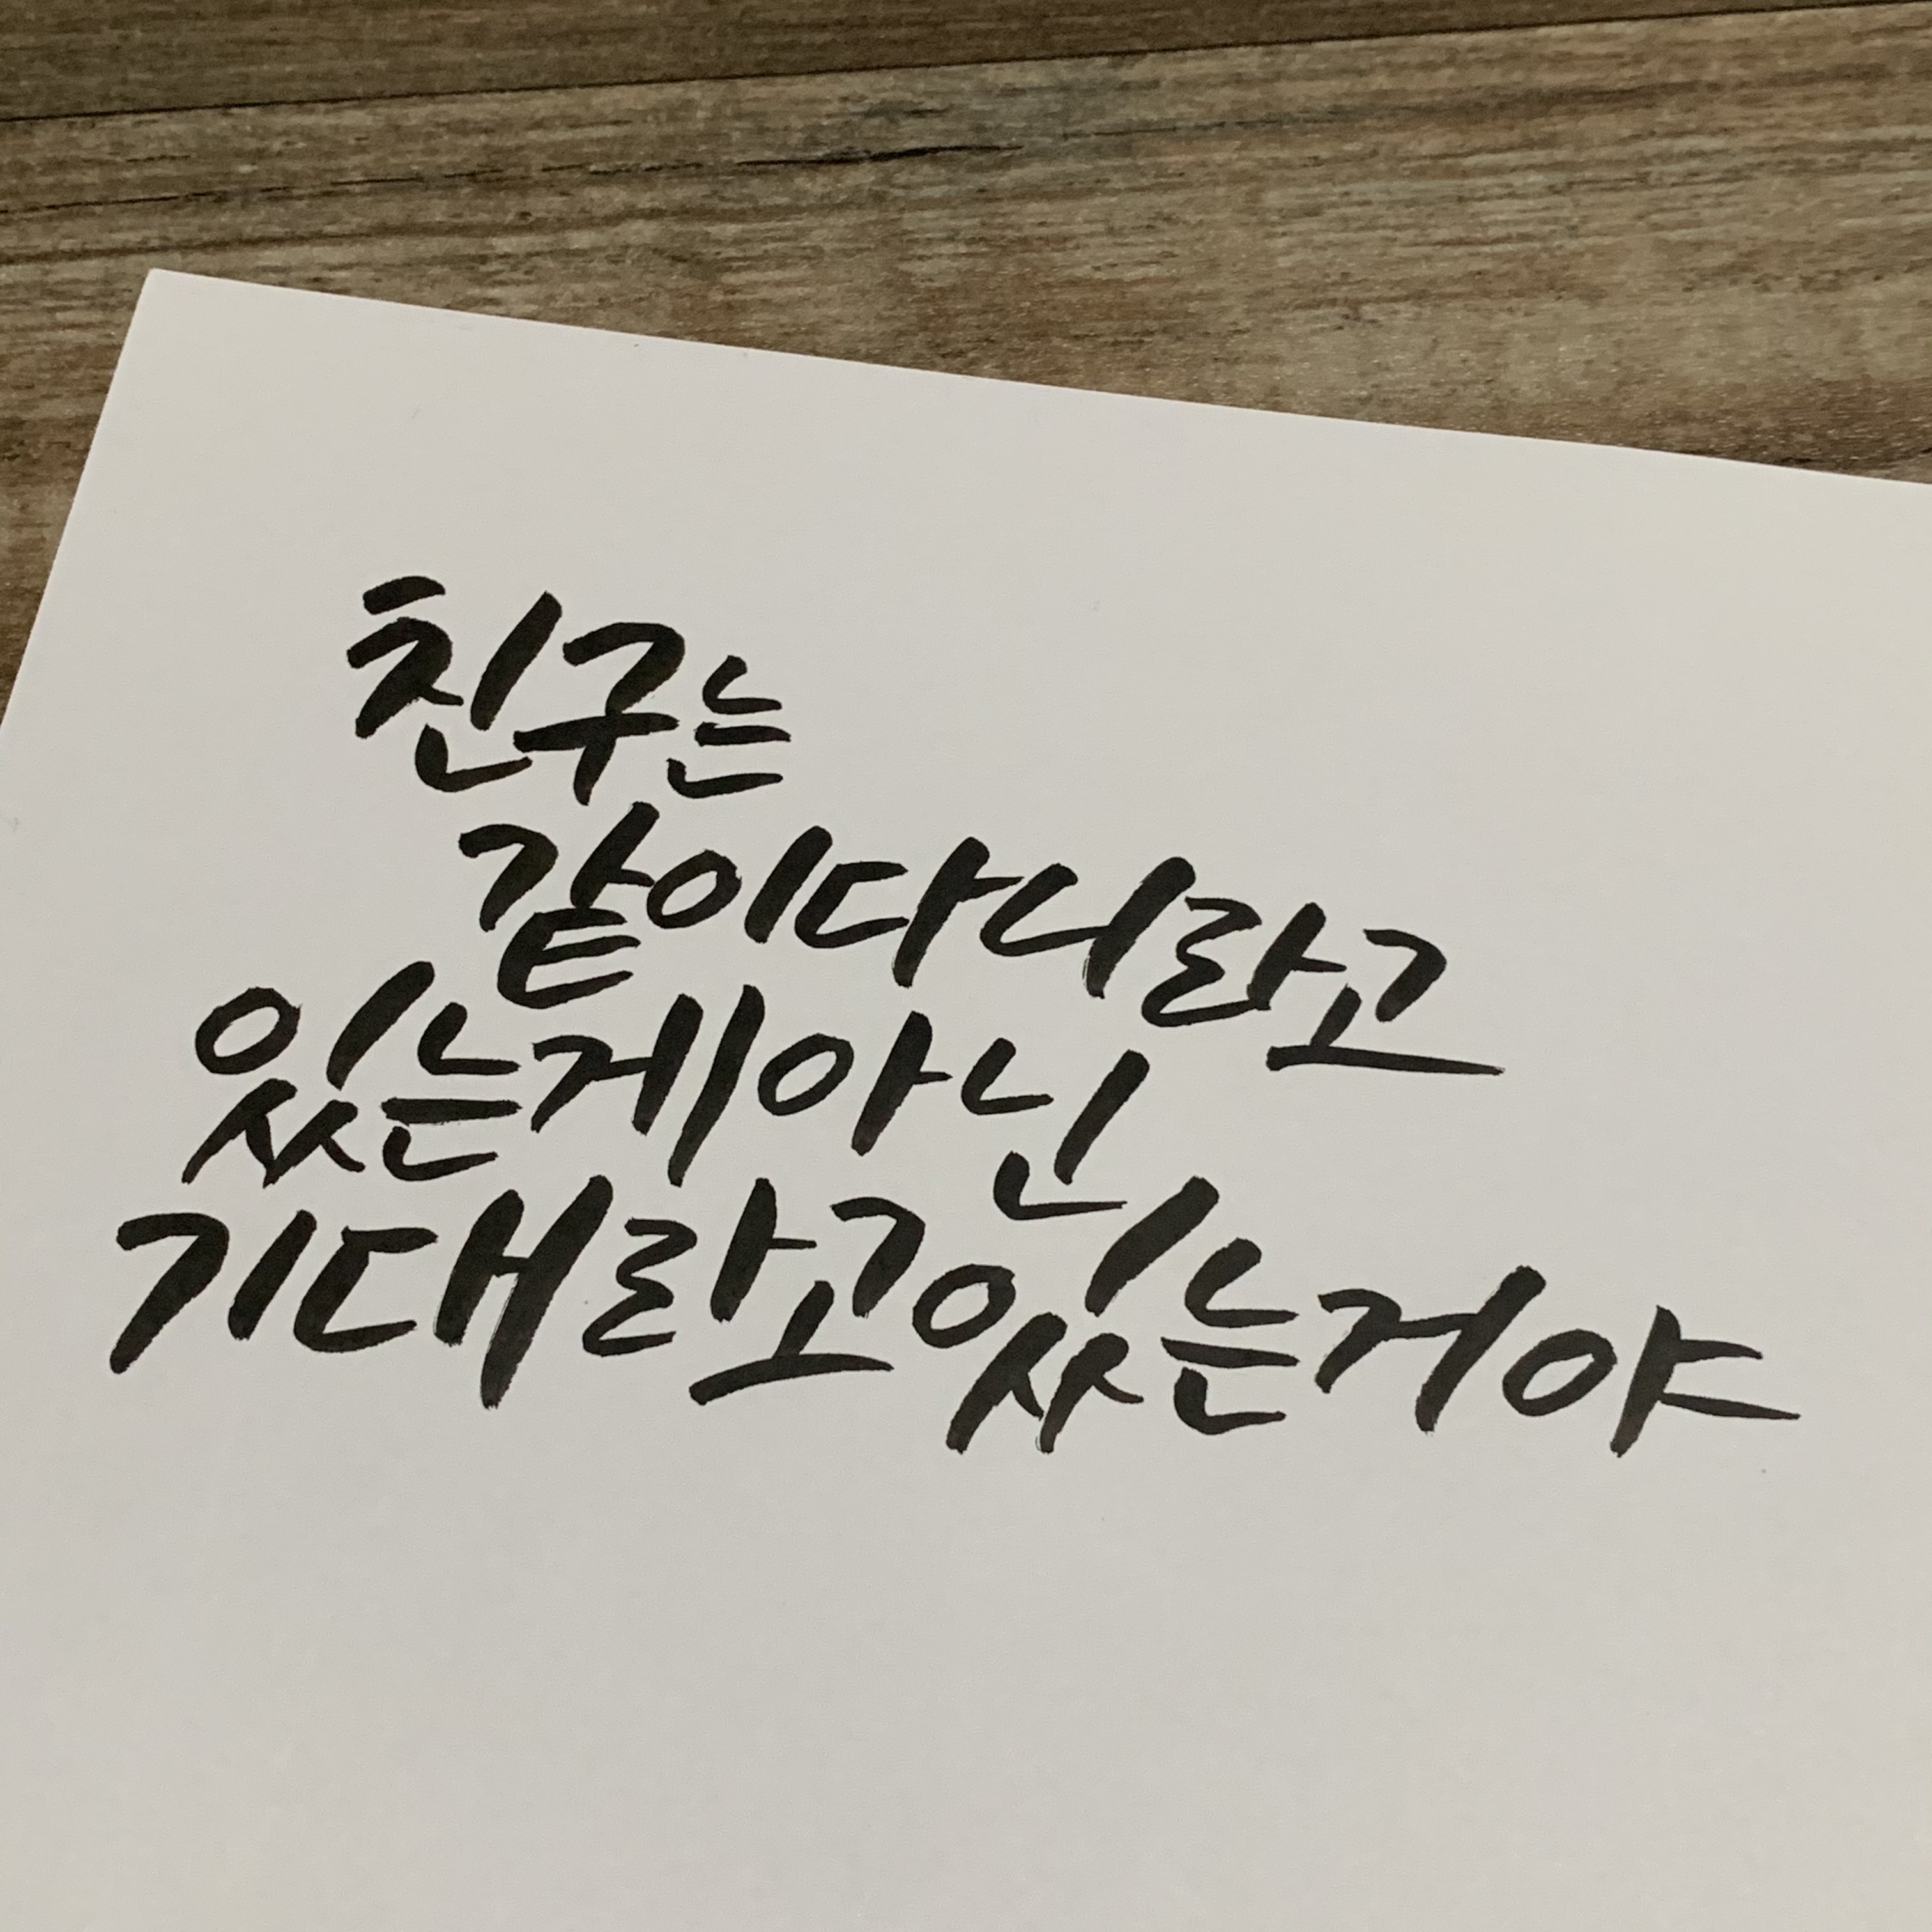 친구는
같이다니라고
있는게아닌
기대라고있는거야